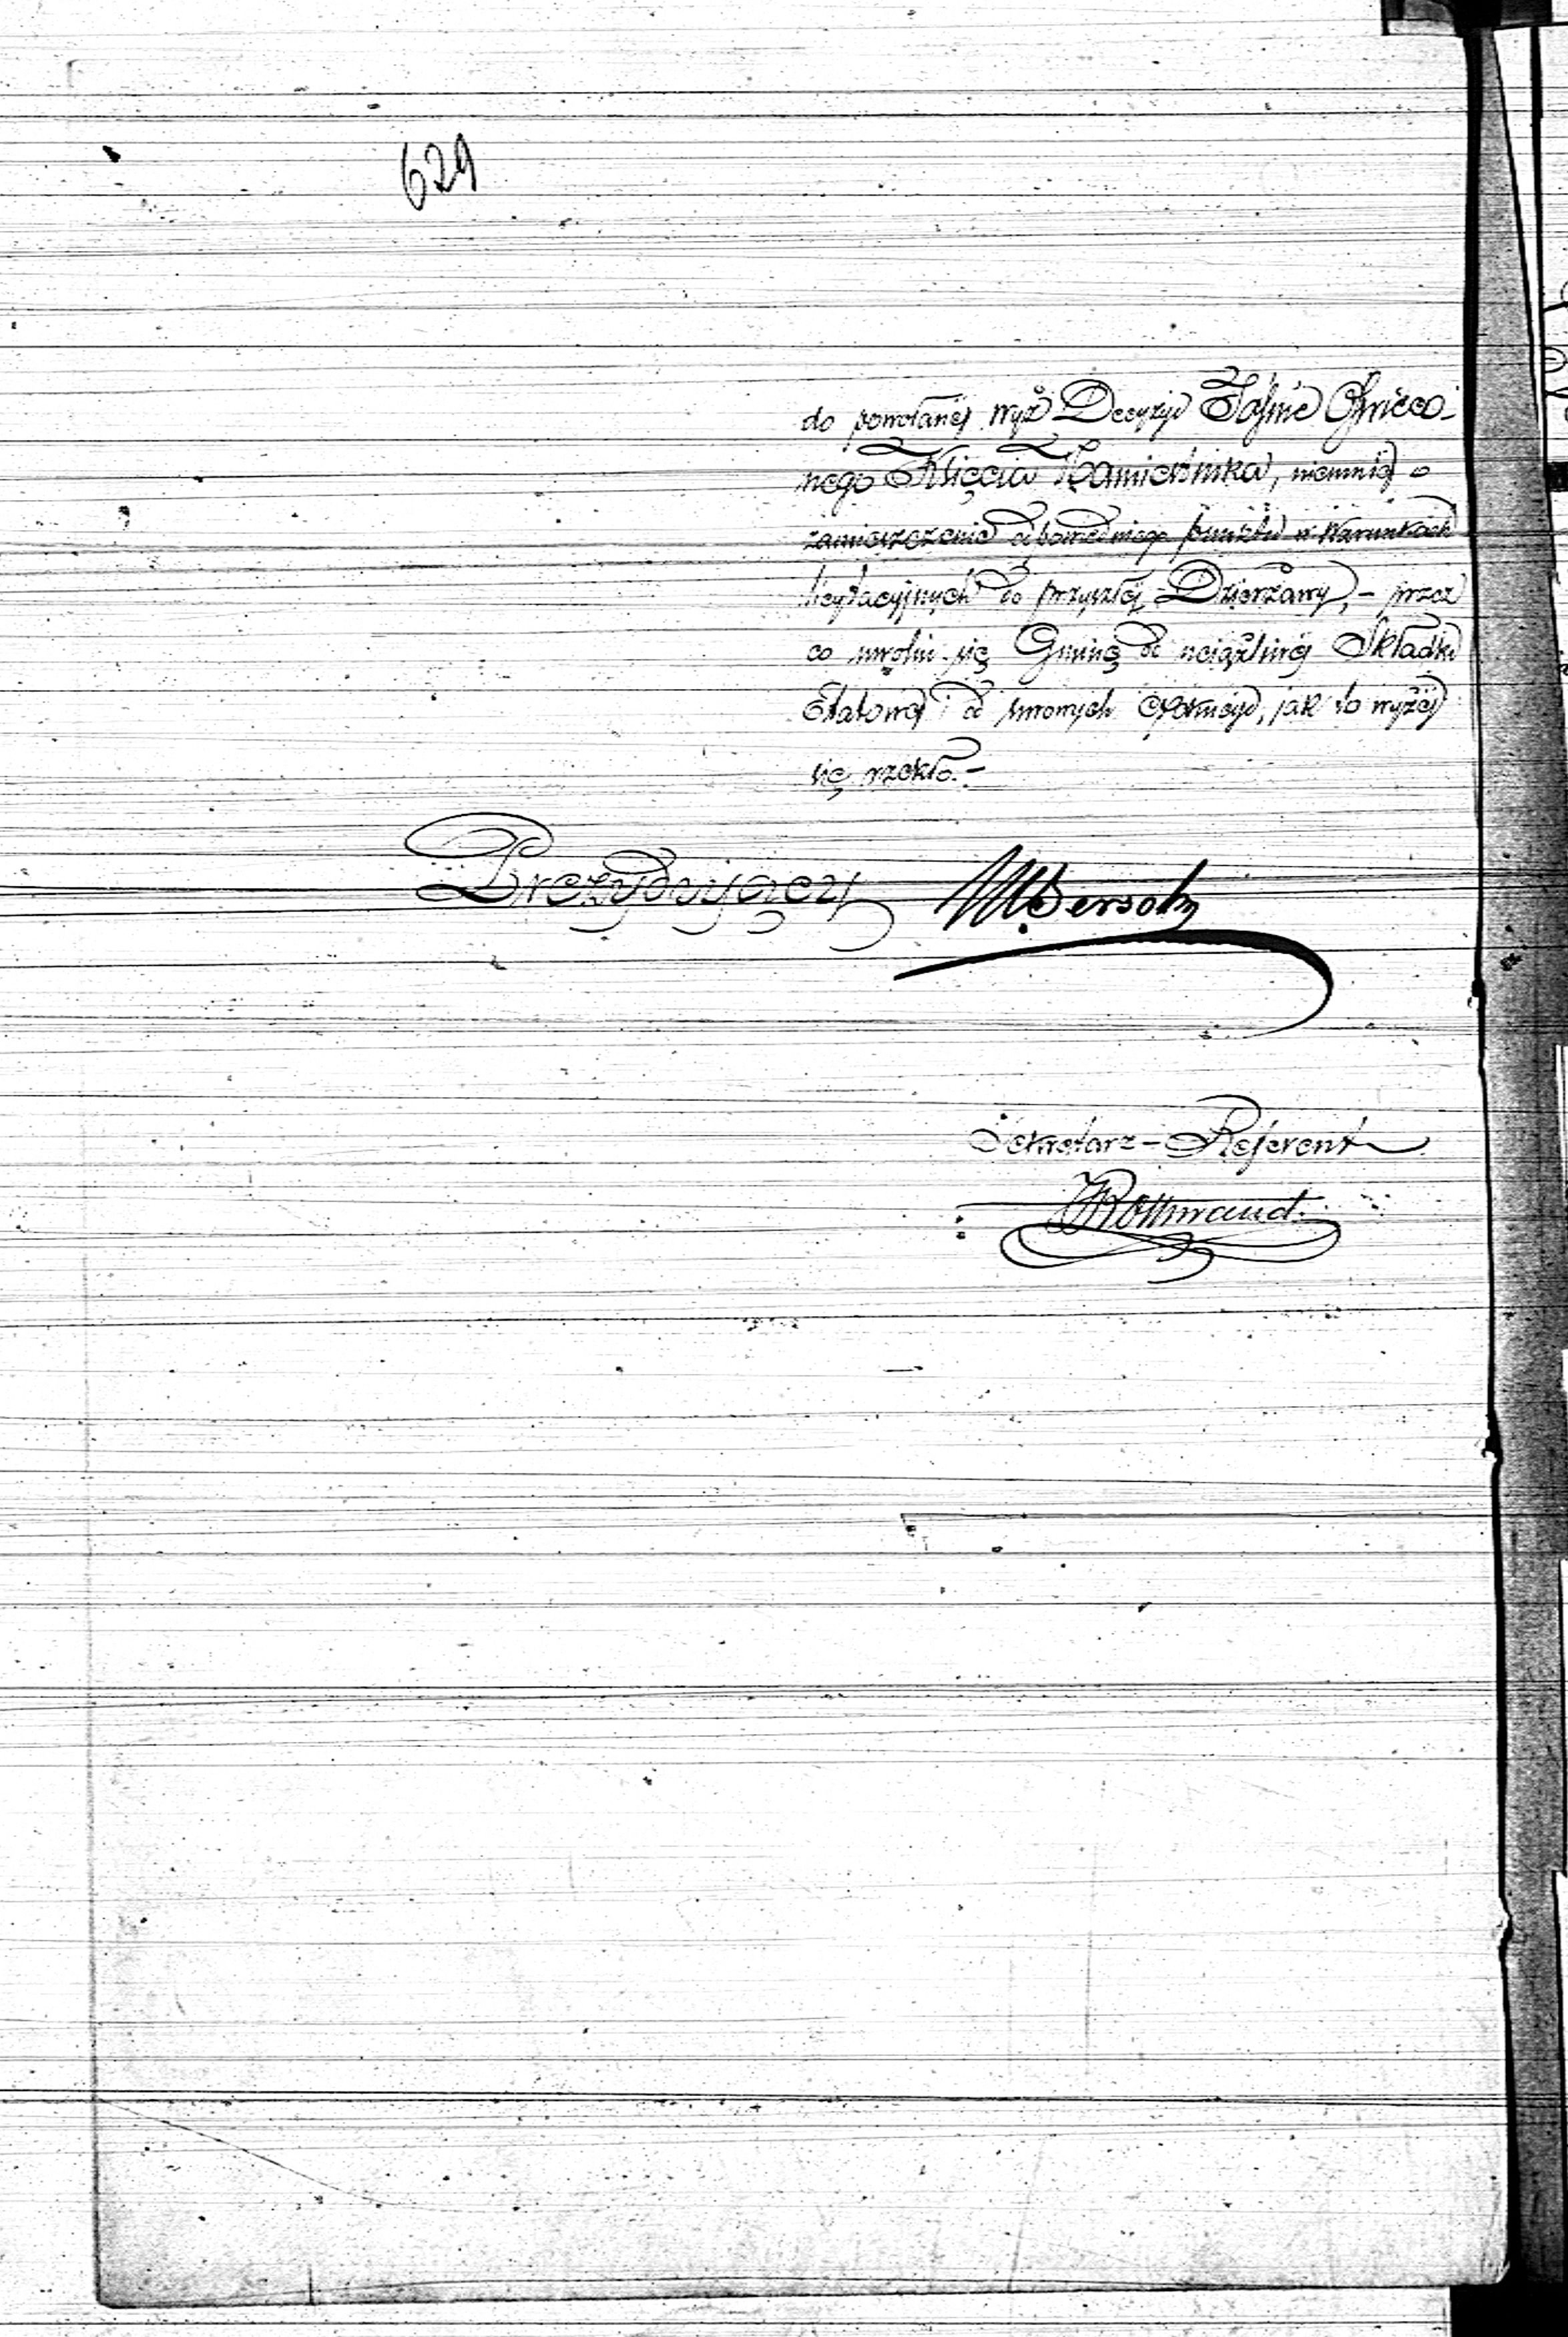 629
do powołanéj wyż Decyzyi Jaśnie Oświeco-
nego Xięcia Namiestnika, niemniéj o
zamieszczenie odpowiedniego punktu w Warunkach
licytacyjnych do przyszłéj Dzierżawy, – przez
co uwolni się Gminę od uciążliwéj Składki
Etatowéj i od innych, jak to wyżéj
się rzekło. –
Prezydujący M Bersohn
Sekretarz – Referent
JRottwand.